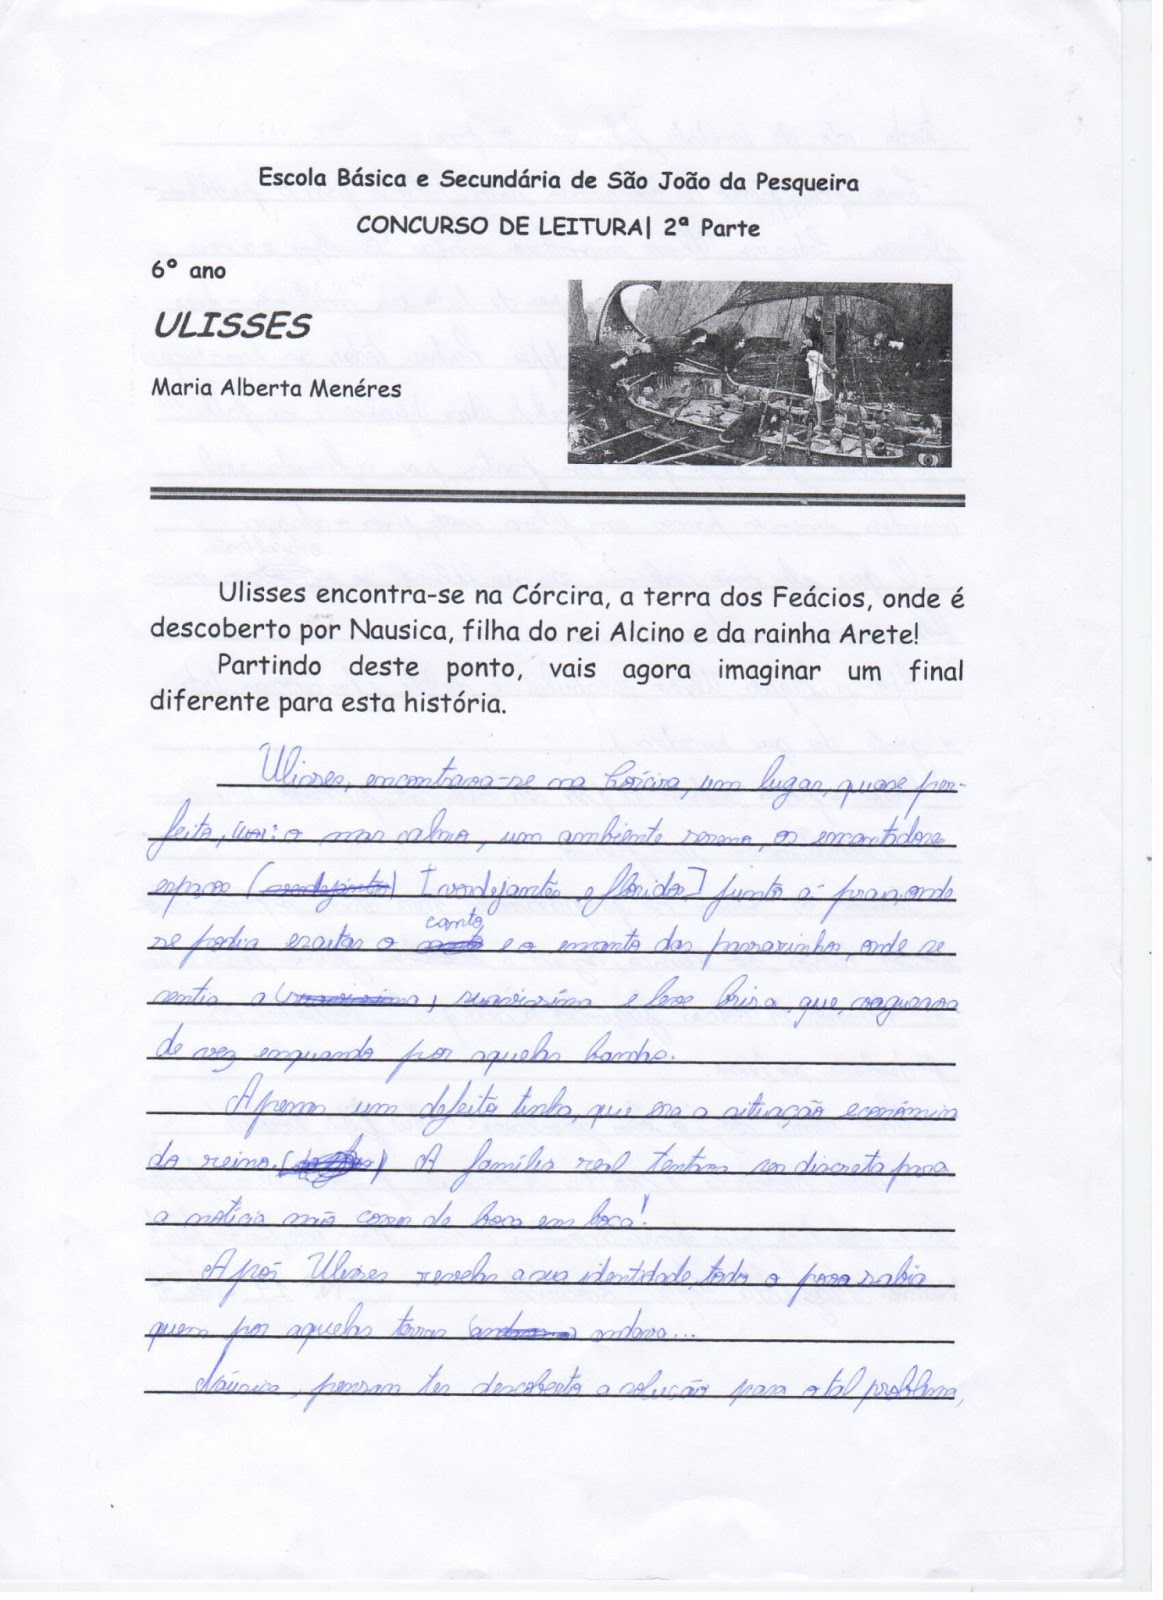 Escola Básica e Secundária de São João da Pesqueira
CONCURSO DE LEITURA| 2ª Parte
6º ano
ULISSES
Maria Alberta Menéres
Ulisses encontra-se na Córcira, a terra dos Feácios, onde é
descoberto por Nausica, filha do rei Alcino e da rainha Arete!
Partindo deste ponto, vais agora imaginar um final
diferente para esta história.
Ulisses, encontrava-se na Córcira, um lugar, quase per-
feito, : o mar calmo, um ambiente sereno, os encantadores
espaços [verdejantes e floridos] junto à praia, onde
se podia escutar o canto e o encanto dos passarinhos, onde se
sentia a suavissíma e leve brisa, que, vagueava
de vez enquando por aquelas bandas.
Apenas um defeito tinha, que era a situação económica
do reino. A família real tentava ser discreta para
a notícia não corra de boca em boca!
Após Ulisses revelar a sua identidade, todo o povo sabia
quem por aquelas terras andava...
Náusica, pensava ter descoberto a solução para o tal problema,